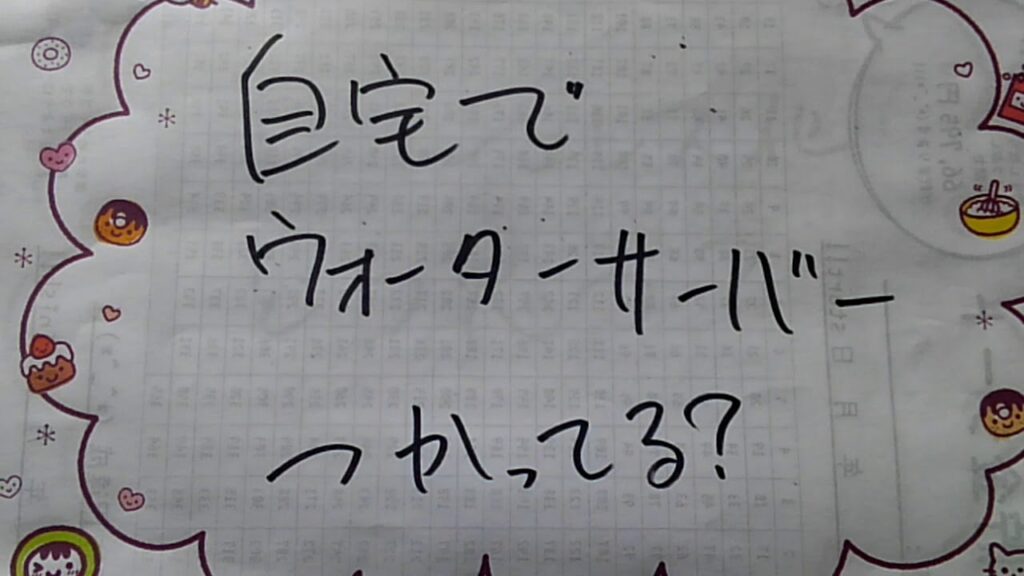 自宅で
ウォーターサーバー
つかってる?